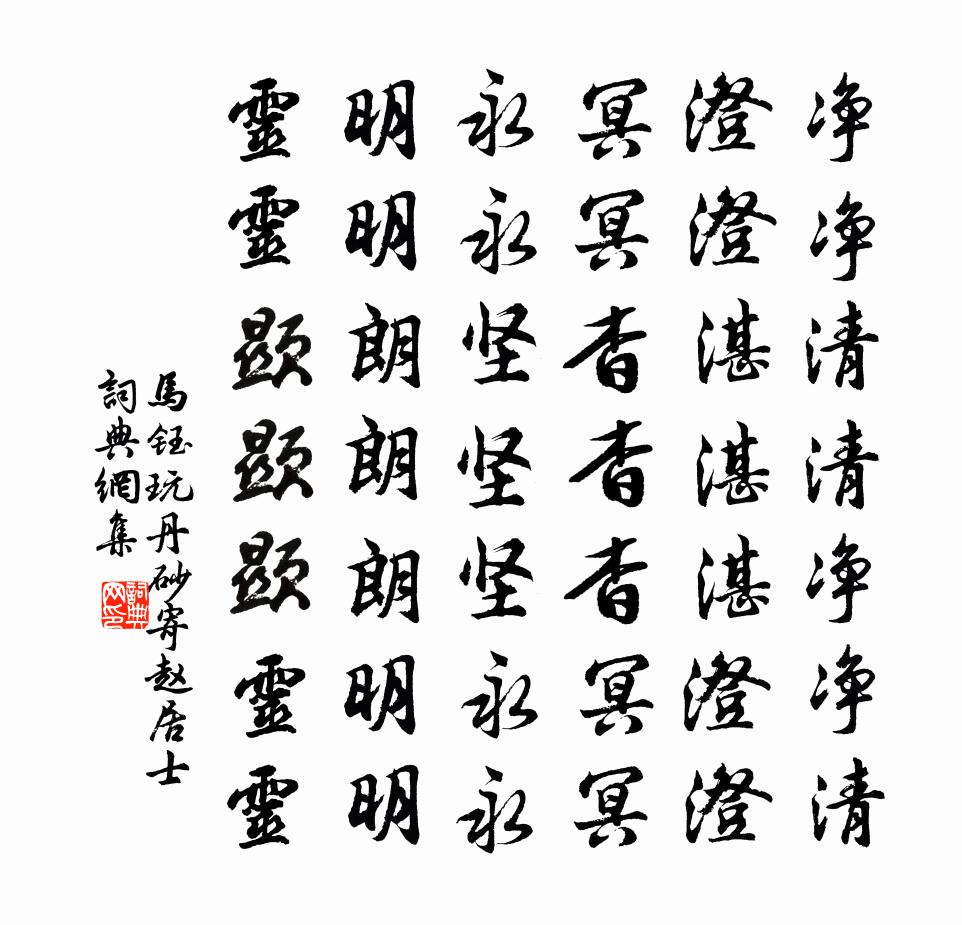 净净清清净净清
澄澄湛湛湛澄澄
冥冥杳杳杳冥冥
永永坚坚坚永永
明明朗朗朗明明
靈靈顯顯顯靈靈
馬鈺玩丹砂寄赵居士
詞典網集
詞典网印